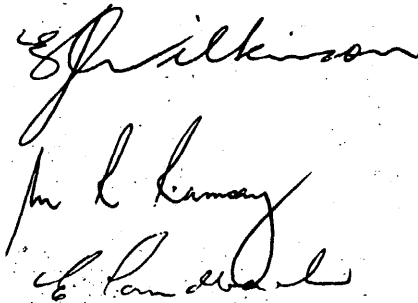 E J Wilkinson
M R Ramsay
E.